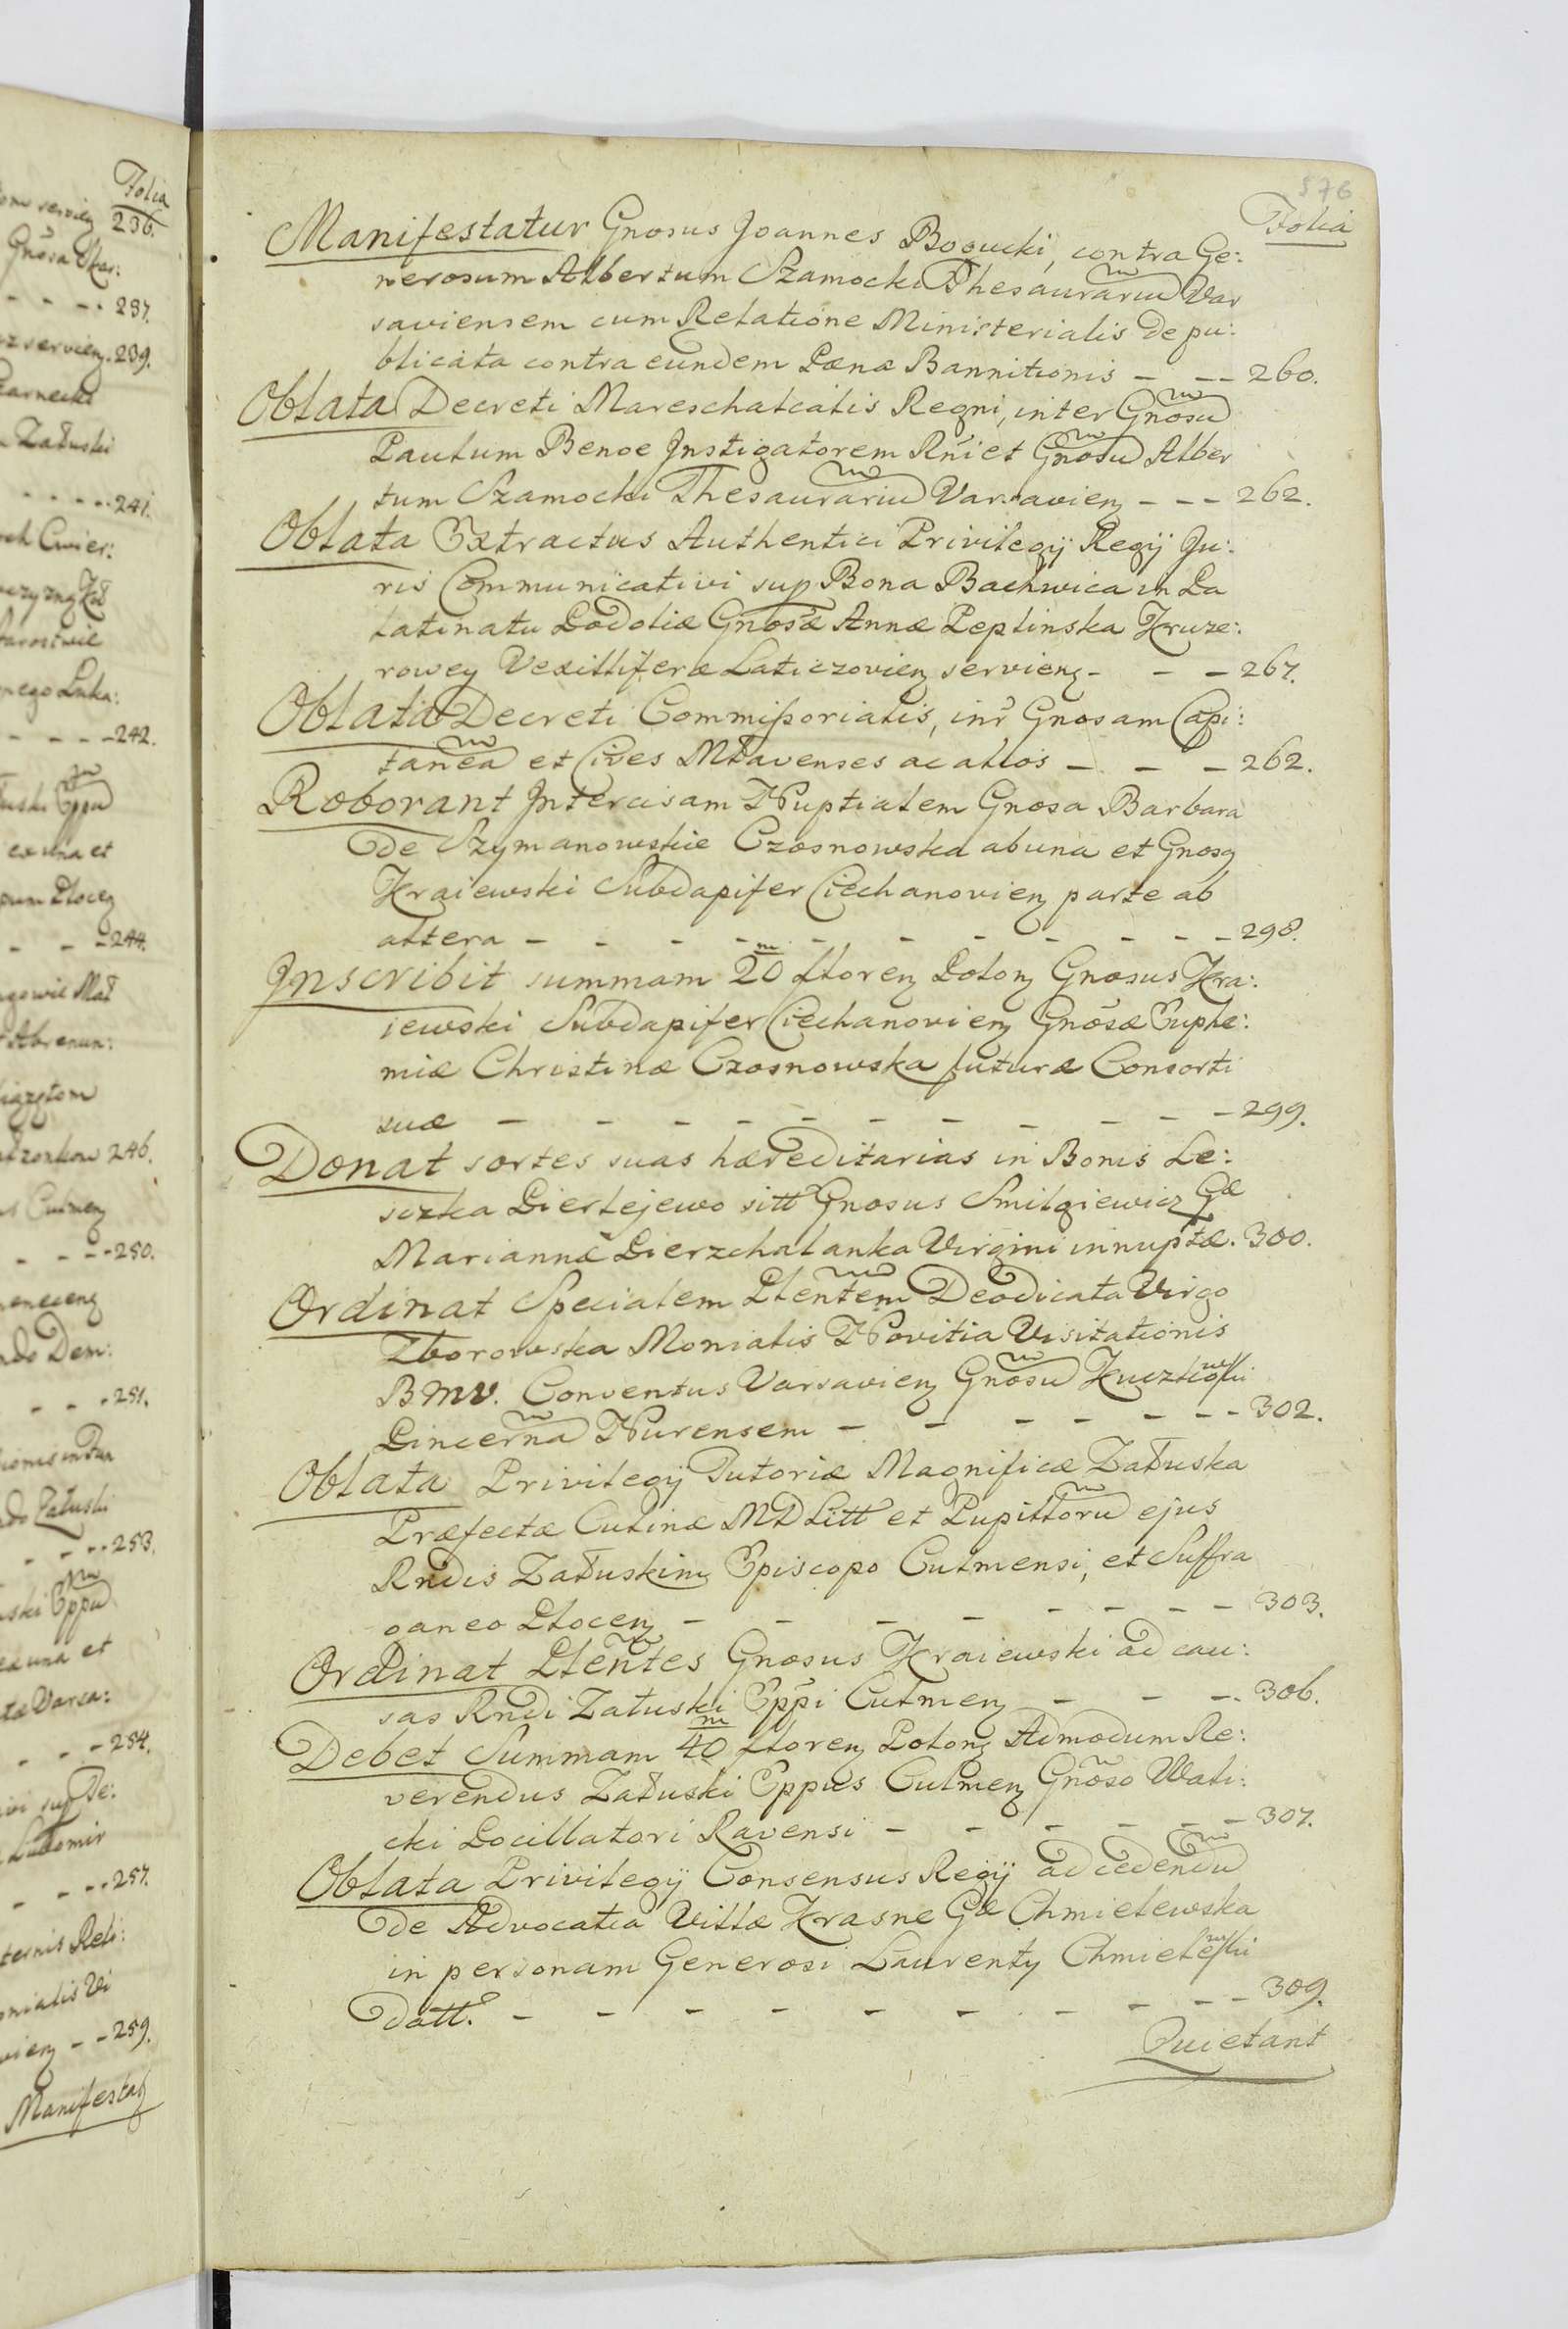 576
Folia
Manifestatur Gnosus Joannes Bogucki, contra Ge:
nerosum Albertum Szamocki Thesaurariu Var
saviensem cum Relatione Ministerialis de pu:
blicata contra eundem Pænæ Bannitionis - - - 260.
Oblata Decreti Mareschalcalis Regni, inter Gnosu
Paulum Benoe Instigatorem Rni et Gnosu Alber
tum Szamocki Thesaurariu Varsavien - - - 262.
Oblata Extractus Authentici Privilegij Regij Ju:
ris Communicativi sup Bona Bachwica in Pa
latinatu Podoliæ Gnosæ Annæ Peplinska Kruze:
rowey Vexilliferæ Laticzovien servien - - - 267.
Oblata Decreti Commissorialis, intr Gnosam Capi:
tanea et Cives Mlavenses ac alios - - - 262.
Roborant Intercisam Nuptialem Gnosa Barbara
de Szymanowskie Czosnowska ab una et Gnosq
Kraiewski Subdapifer Ciechanovien parte ab
altera - - - - - - - - - - 298.
Inscribit summam 20 m floren Polon Gnosus Kra:
iewski Subdapifer Ciechanovien Gnosæ Euphe:
miæ Christinæ Czosnowska futuræ Consorti
suæ - - - - - - - - - - 299.
Donat sortes suas hæreditarias in Bonis Le:
sczka Pierlejewo sitt Gnosus Smilgiewicz Gæ
Mariannæ Pierzchalanka Virgini innuptæ. 300.
Ordinat Specialem Pltentem Deodicata Virgo
Zborowska Monialis Novitia Visitationis
BMV. Conventus Varsavien Gnosu Kuczkowski
Pincerna Nurensem - - - - - - - 302.
Oblata Privilegij Tutoriæ Magnificæ Załuska
Præfectæ Culinæ MD Litt et Pupilloru ejus
Rndis Załuskim Episcopo Culmensi, et Suffra
ganeo Plocen - - - - - - - - 303.
Ordinat Pltentes Gnosus Kraiewski ad cau:
sas Rndi Załuski Eppi Culmen - - - 306.
Debet Summam 40 m floren Polon Admodum Re:
verendus Załuski Eppus Culmen Gnoso Wali:
cki Pocillatori Ravensi - - - - - - 307.
Oblata Privilegij Consensus Regij ad cedendu
de Advocatia Villæ Krasne Gæ Chmielewska
in personam Generosi Laurentij Chmielewski
datt. - - - - - - - - - - 309.
Quietant
Folia
236.
237.
servien. 239.
Załuski
241.
242.
ex una et
244.
246.
250.
251.
Załuski
253.
254.
257.
259.
Manifestat